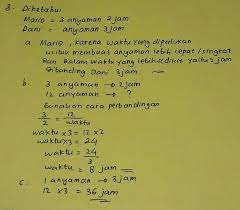 3. Diketahui
Mario = 3 anyaman 2 jam
Dani = anyaman 3 jam
a. Mario, karena waktu yang diperlukan
untuk membuat anyaman lebih cepat / singkat
Dan Dalam waktu yang lebih yaitu 2 jam
Dibanding Dani 3 jam
b. 3 anyaman → 2 jam
12 anyaman → ?
Gunakan cara perbandingan
3/2 = 12/waktu
waktu x 3 = 12 x 2
waktu x 3 = 24
waktu = 24/3
waktu = 8 jam
c. 1 anyaman → 3 jam
12 x 3 = 36 jam